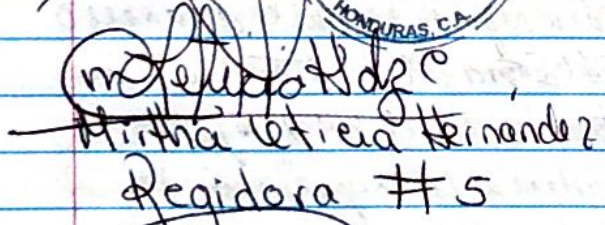 HONDURAS, C.A.
mLeticia Hdz C
Mirtha Leticia Hernández
Regidora # 5